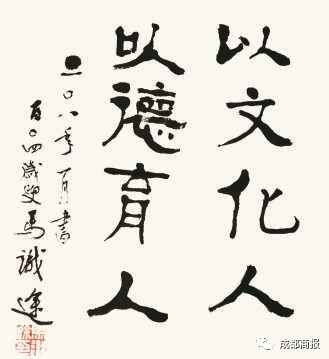 以文化人
以德育人
二〇八年一月書
百〇四歲叟馬識途
成都商报